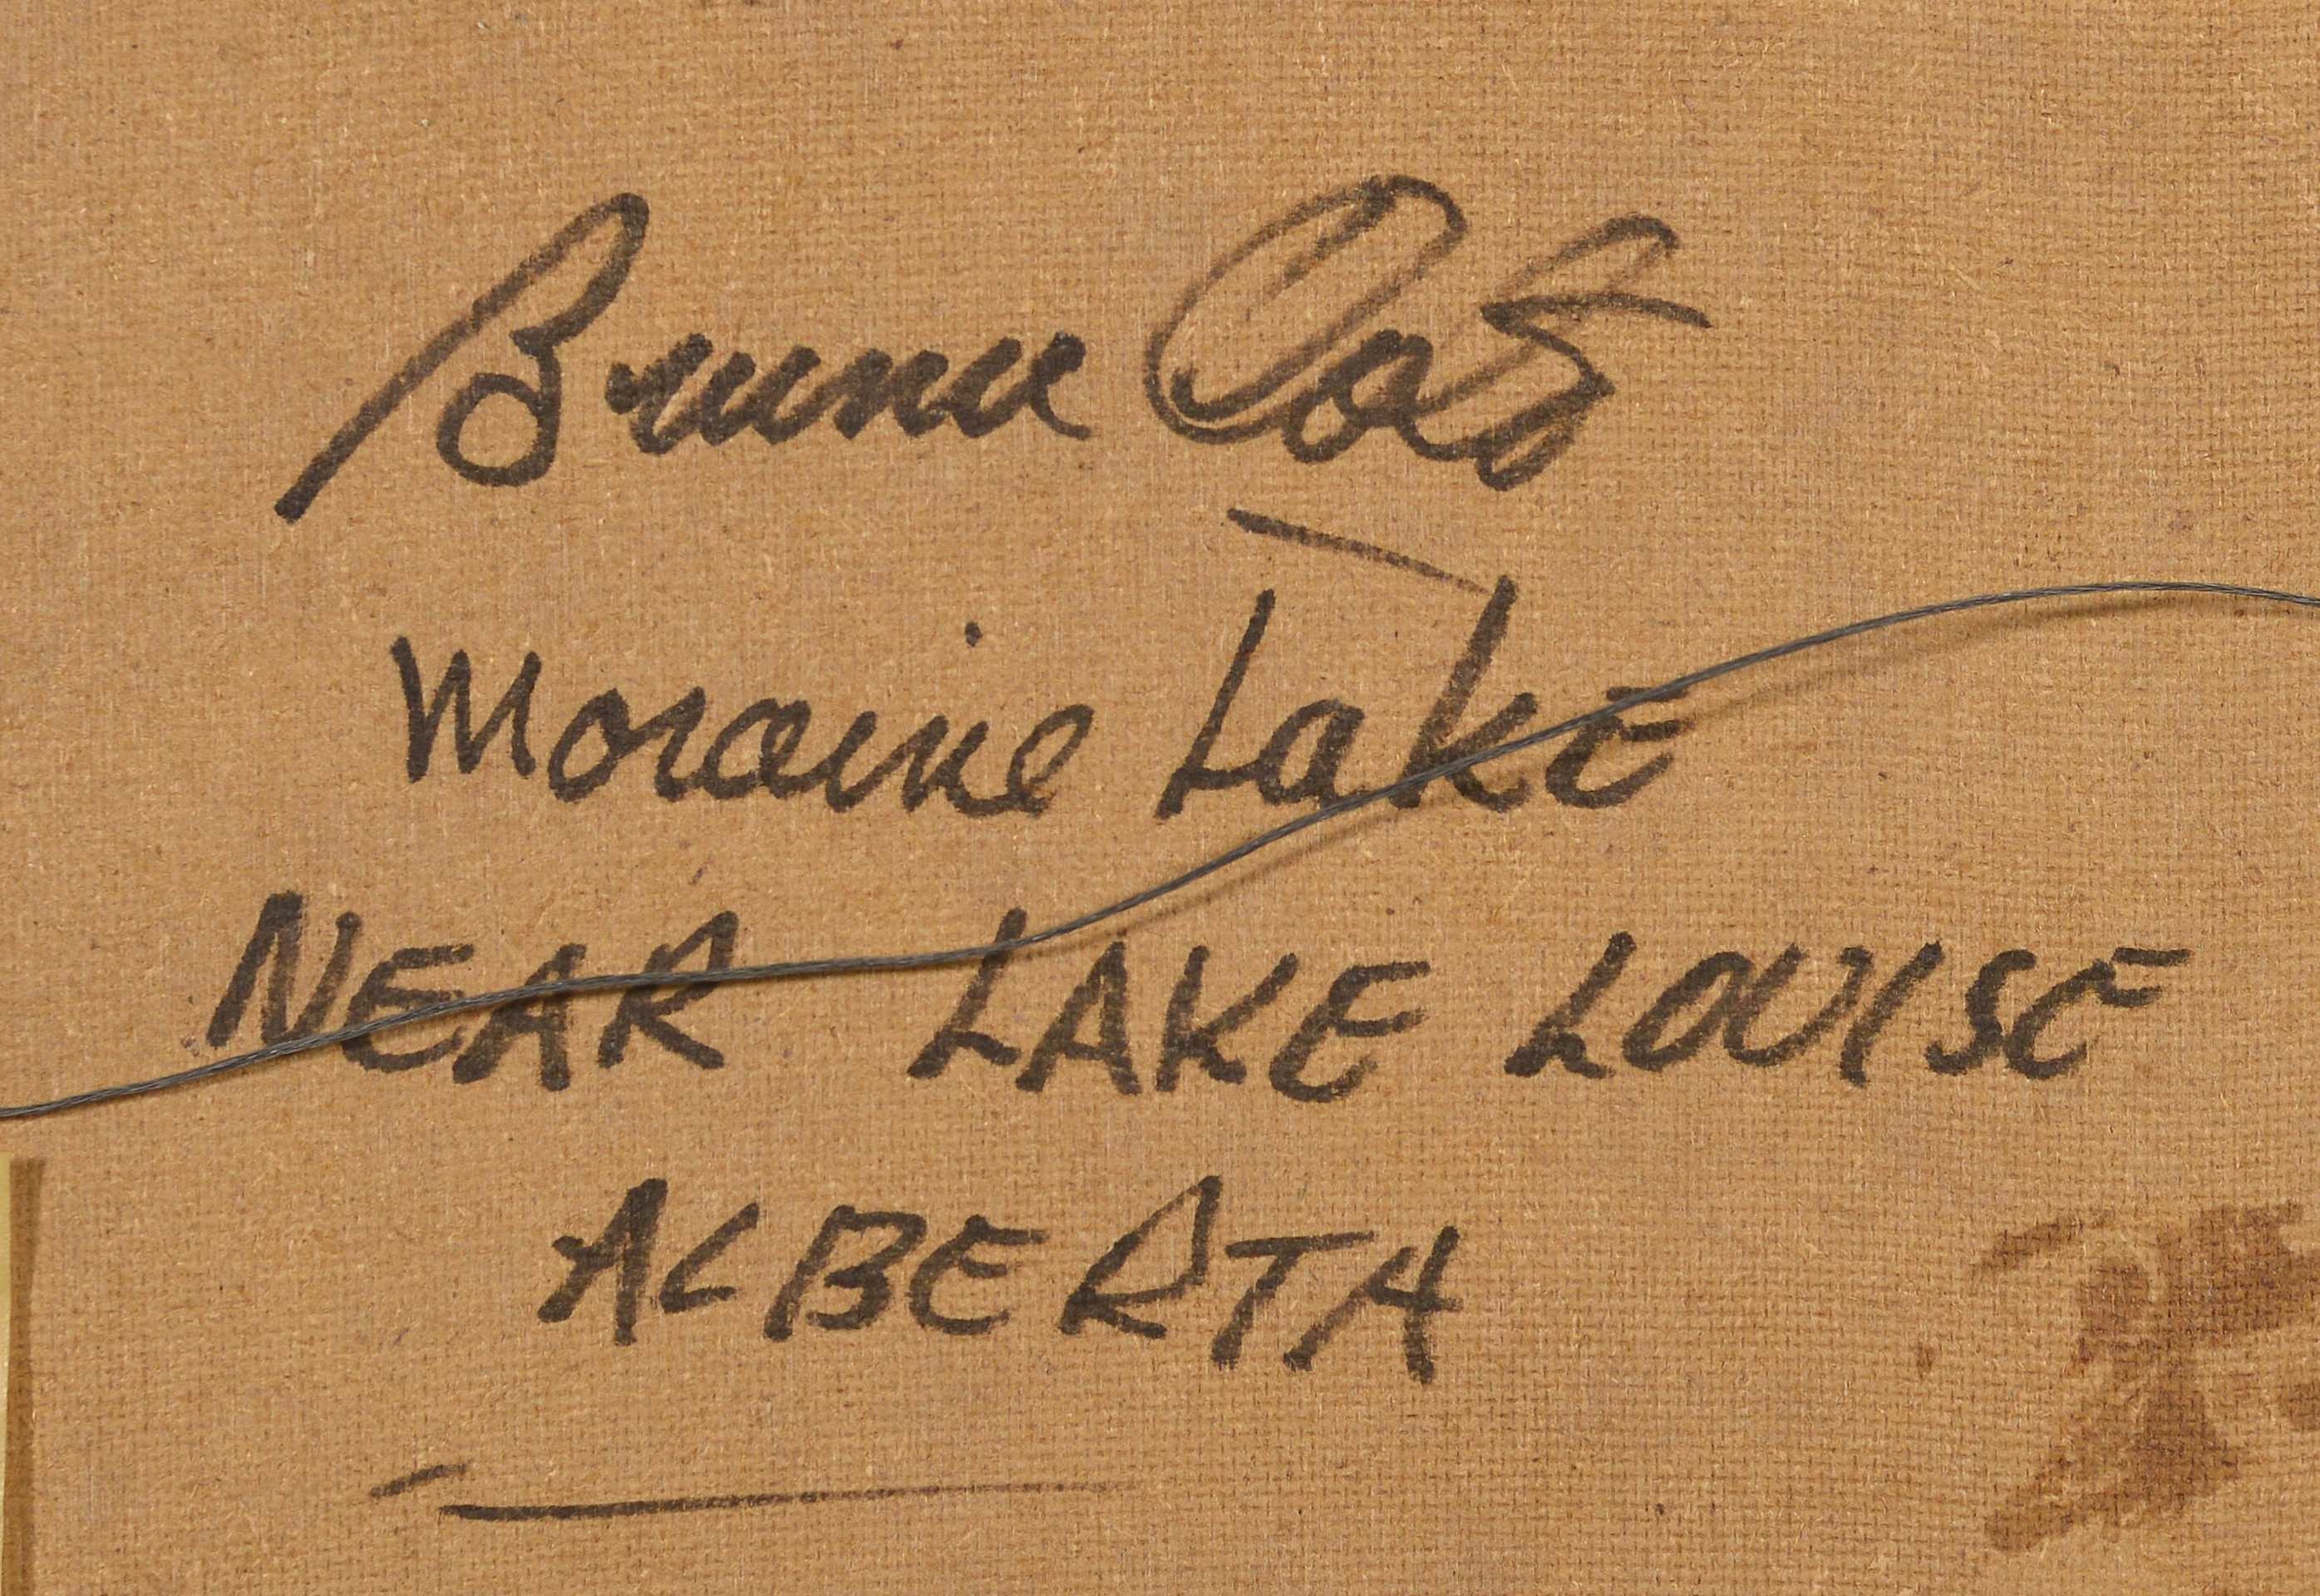 Bruno Côté
Moraine Lake
NEAR LAKE LOUISE
ALBERTA